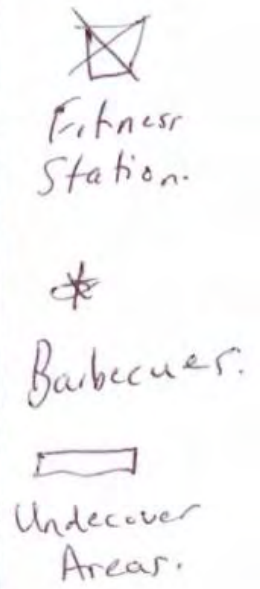 Fitness
Station.
Barbecues.
Undecover
Areas.